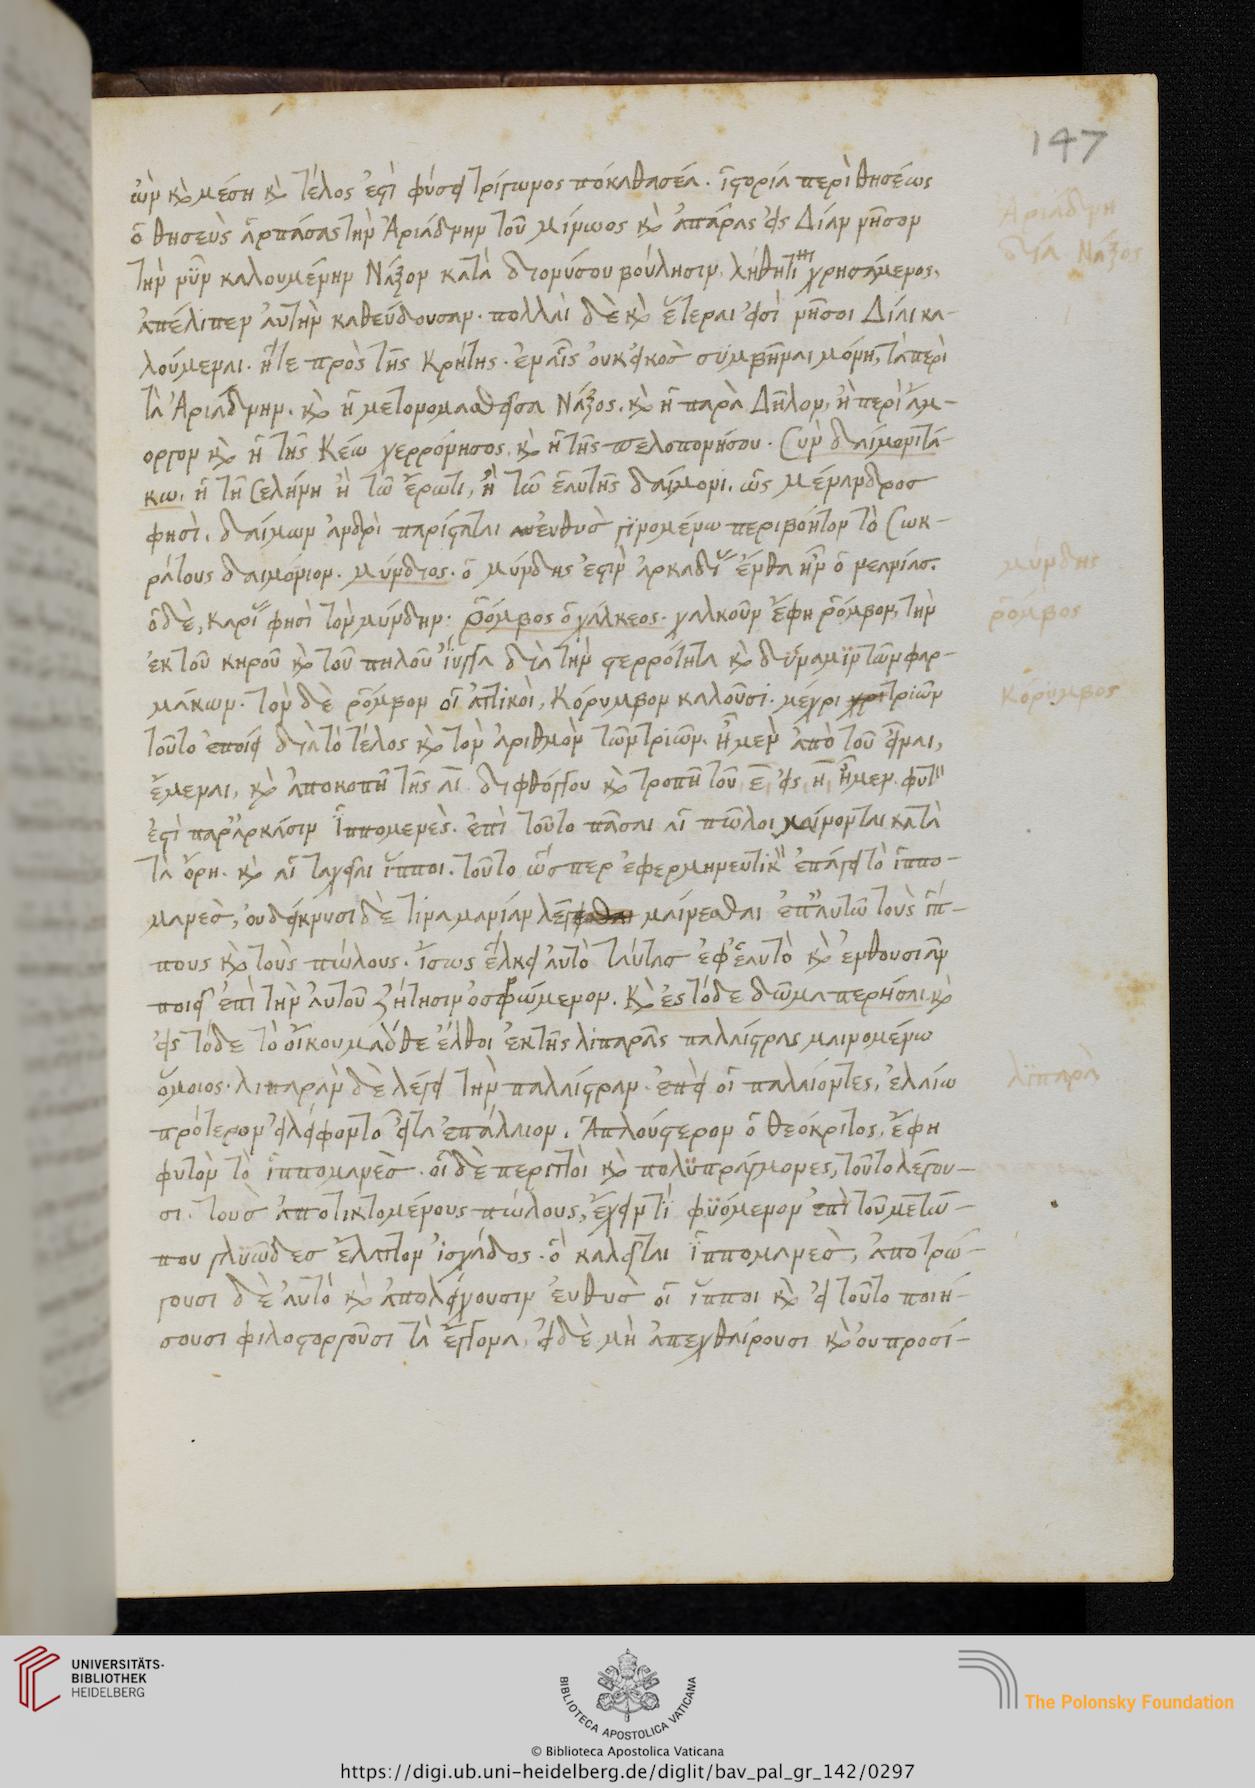 147
ὢν κ̀ μέση κ̀ τέλος ἐστὶ φύσει τρίγωνος πόκαθασέλ. ἱστορία περὶ θησέως
ὁ θησεὺς ἁρπάσας τὴν Ἀριάδνην τοῦ μίνωος κ̀ ἀπάρας εἰς Δίαν νῆσον
τὴν νῦν καλουμένην Νάξον κατὰ διονύσου βούλησιν, λήθητι χρησάμενος,
ἀπέλιπεν αὐτὴν καθεύδουσαν. πολλαὶ δὲ κ̀ ἕτεραι εἰσὶ νῆσοι Δίαι κα-
λούμεναι. ἥτε πρὸς τῆς Κρήτης. ἐναῖς οὐκ εἰκοσ συμβῆναι μόνη, τὰ περὶ
τὰ Ἀριάδνην. κ̀ ἡ μετονομασθεῖσα Νάξος. κ̀ ἡ παρὰ Δῆλον, ἡ περὶ ἀμ-
οργον κ̀ ἡ τῆς Κέω χερρόνησος, κ̀ ἡ τῆς πελοπονήσου. Σὺν δαίμονι τά-
κω. ἢ τῆ Σελήνη ἢ τῶ ἔρωτι, ἢ τῶ ἑαυτῆς δαίμονι. ὡς μένανδροσ
φησὶ. δαίμων ἀνδρὶ παρίσταται εὐθυσ γινομένω περιβόητον τὸ Σωκ-
ράτους δαιμόνιον. μύνδιος. ὁ μύνδης ἐστὶν ἀρκαδι ἔνθα ἦν ὁ
ὁδὲ, καρι φησὶ τὸν μύνδην: Ῥόμβος ὁ χάλκεος. χαλκοῦν ἔφη ῥόμβον, τὴν
ἐκ τοῦ κηροῦ κ̀ τοῦ πηλοῦ ἴϋγγα διὰ τὴν στερρότητα κ̀ δύναμϊν τῶν φαρ-
μάκων. τὸν δὲ ῥόμβον οἱ ἀττικοὶ, Κόρυμβον καλοῦσι. μέχρι τριῶν
τοῦτο ἐποίει διὰ τὸ τέλος κ̀ τὸν ἀριθμὸν τῶν τριῶν. ἦμεν ἀπὸ τοῦ εἶναι,
ἔμεναι, κ̀ ἀποκοπῆ τῆς αι διφθόγγου κ̀ τροπῆ τοῦ ε εἰς η ἦμεν. φυτ
ἐστὶ παρ' ἀρκάσιν Ἱππομενὲς. ἐπὶ τοῦτο πᾶσαι αἱ πῶλοι μαίνονται κατὰ
τὰ ὄρη. κ̀ αἱ ταχεῖαι ἵπποι. τοῦτο ὥσπερ ἐφερμηνευτικ ἐπάγει τὸ ἱππο-
μανεσ, οὐ δείκνυσι δὲ τίνα μανίαν λέγει μαίνεσθαι ἐπ' αὐτῶ τοὺς ἵπ-
πους κ̀ τοὺς πώλους. ἴσως ἕλκει αὐτὸ ταύτασ ἐφ' ἑαυτὸ κ̀ ἐνθουσιᾶν
ποιεῖ ἐπὶ τὴν αὐτοῦ ζήτησιν ὀσφρώμενον. Κ̀ ἐς τόδε δῶμα περήσαι κ̀
εἰς τόδε τὸ οἴκουμαδθε ἔλθοι ἐκ τῆς λιπαρᾶς παλαίστρας μαινομένω
ὅμοιος. λιπαρὰν δὲ λέγει τὴν παλαίστραν. ἐπεὶ οἱ παλαίοντες, ἐλαίω
πρότερον εἰλείφοντο εἶτα ἐπάλαιον. Ἁπλούστερον ὁ θεόκριτος, ἔφη
φυτὸν τὸ ἱππομανὲσ. οἱ δὲ περιττοὶ κ̀ πολϋπράγμονες, τοῦτο λέγου-
σι. τοὺσ ἀποτικτομένους πώλους, ἔχειν τϊ φϋόμενον ἐπὶ τοῦ μετώ-
που γλυῶδεσ ἔλαττον ἰσχάδος. ὃ καλεῖται ἱππομανεσ, ἀποτρώ-
γουσι δὲ αὐτὸ κ̀ ἀπολείχουσιν εὐθυσ οἱ ἵπποι κ̀ εἰ τοῦτο ποιή-
σουσι φιλοστοργοῦσι τὰ ἔγγονα. εἰ δὲ μὴ ἀπεχθαίρουσι κ̀ οὐ προσί-
Ἀριάδνη
δία Νάξος
μύνδης
ῥόμβος
Κόρϋμβος
λϊπαρὰ
UNIVERSITÄTS-
BIBLIOTHEK
HEIDELBERG
BIBLIOTECA APOSTOLICA VATICANA
The Polonsky Foundation
© Biblioteca Apostolica Vaticana
https://digi.ub.uni-heidelberg.de/diglit/bav_pal_gr_142/0297